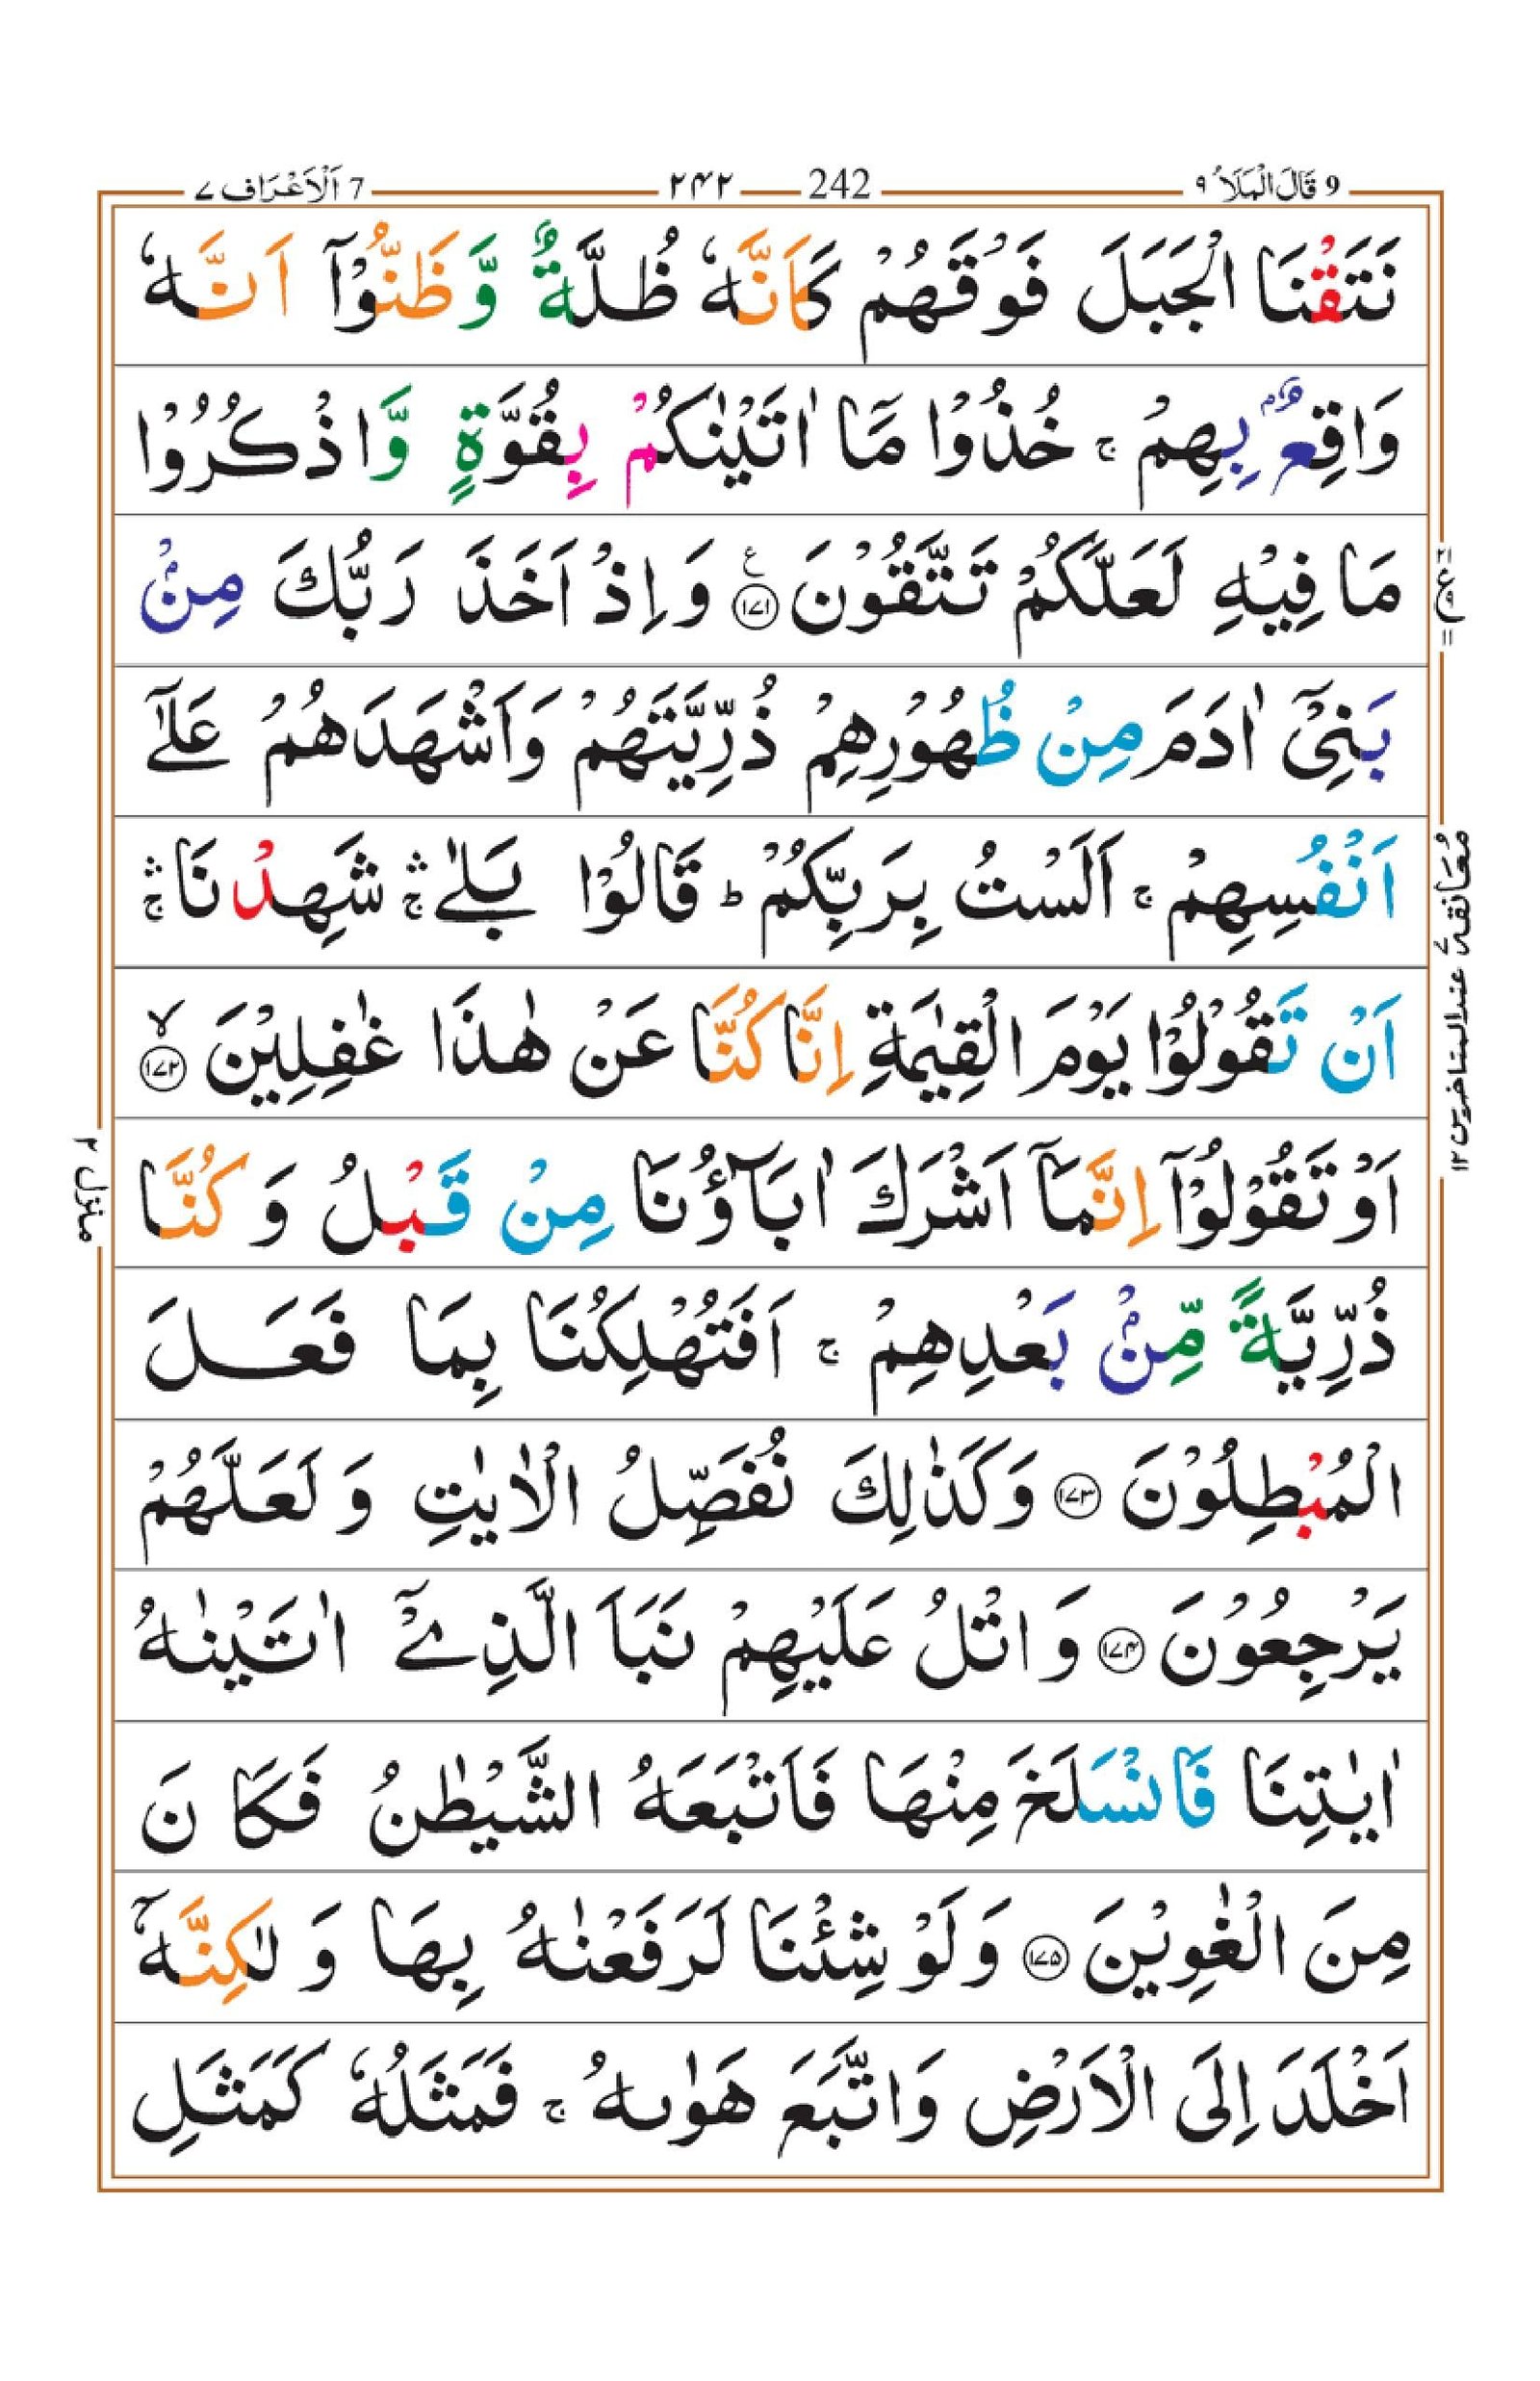 9 قَالَ الْمَلَاُ ۹ 242 ۲۴۲ 7 اَلْاَعْرَاف ۷
نَتَقْنَا الْجَبَلَ فَوْقَهُمْ كَاَنَّهٗ ظُلَّةٌ وَّظَنُّوْۤا اَنَّهٗ
وَاقِعٌۢ بِهِمْ ۚ خُذُوْا مَاۤ اٰتَيْنٰكُمْ بِقُوَّةٍ وَّاذْكُرُوْا
مَا فِيْهِ لَعَلَّكُمْ تَتَّقُوْنَ ﴿۱۷۱﴾ ع وَاِذْ اَخَذَ رَبُّكَ مِنْۢ
بَنِيْۤ اٰدَمَ مِنْ ظُهُوْرِهِمْ ذُرِّيَّتَهُمْ وَاَشْهَدَهُمْ عَلٰۤى
اَنْفُسِهِمْ ۚ اَلَسْتُ بِرَبِّكُمْ ؕ قَالُوْا بَلٰى ۛۚ شَهِدْنَا ۛۚ
اَنْ تَقُوْلُوْا يَوْمَ الْقِيٰمَةِ اِنَّا كُنَّا عَنْ هٰذَا غٰفِلِيْنَ ﴿۱۷۲﴾ ۙ
اَوْ تَقُوْلُوْۤا اِنَّمَاۤ اَشْرَكَ اٰبَآؤُنَا مِنْ قَبْلُ وَ كُنَّا
ذُرِّيَّةً مِّنْۢ بَعْدِهِمْ ۚ اَفَتُهْلِكُنَا بِمَا فَعَلَ
الْمُبْطِلُوْنَ ﴿۱۷۳﴾ وَكَذٰلِكَ نُفَصِّلُ الْاٰيٰتِ وَ لَعَلَّهُمْ
يَرْجِعُوْنَ ﴿۱۷۴﴾ وَاتْلُ عَلَيْهِمْ نَبَاَ الَّذِيْۤ اٰتَيْنٰهُ
اٰيٰتِنَا فَانْسَلَخَ مِنْهَا فَاَتْبَعَهُ الشَّيْطٰنُ فَكَانَ
مِنَ الْغٰوِيْنَ ﴿۱۷۵﴾ وَلَوْ شِئْنَا لَرَفَعْنٰهُ بِهَا وَ لٰكِنَّهٗۤ
اَخْلَدَ اِلَى الْاَرْضِ وَاتَّبَعَ هَوٰىهُ ۚ فَمَثَلُهٗ كَمَثَلِ
مُعَانقة ۷ عند المتاخرین ۱۲
منزل ۲